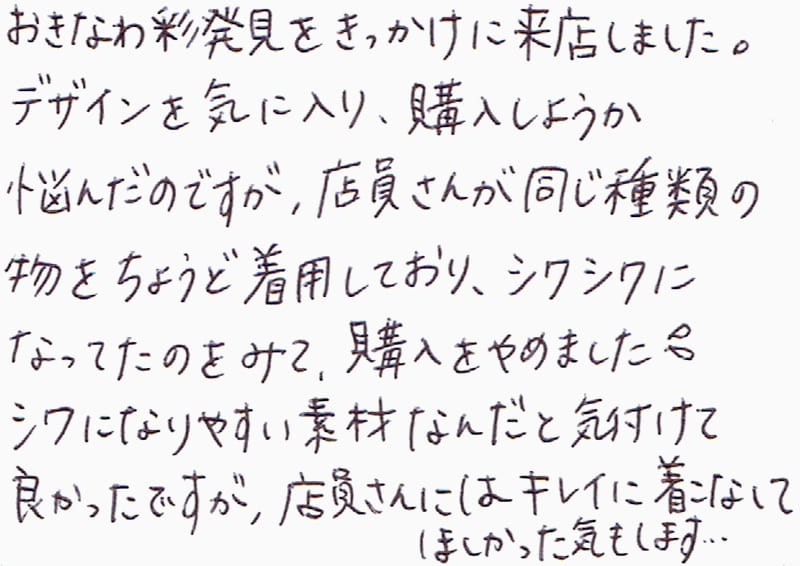 おきなわ彩発見をきっかけに来店しました。
デザインを気に入り、購入しようか
悩んだのですが、店員さんが同じ種類の
物をちょうど着用しており、シワシワに
なってたのをみて、購入をやめました
シワになりやすい素材なんだと気付けて
良かったですが、店員さんにはキレイに着こなして
ほしかった気もします…